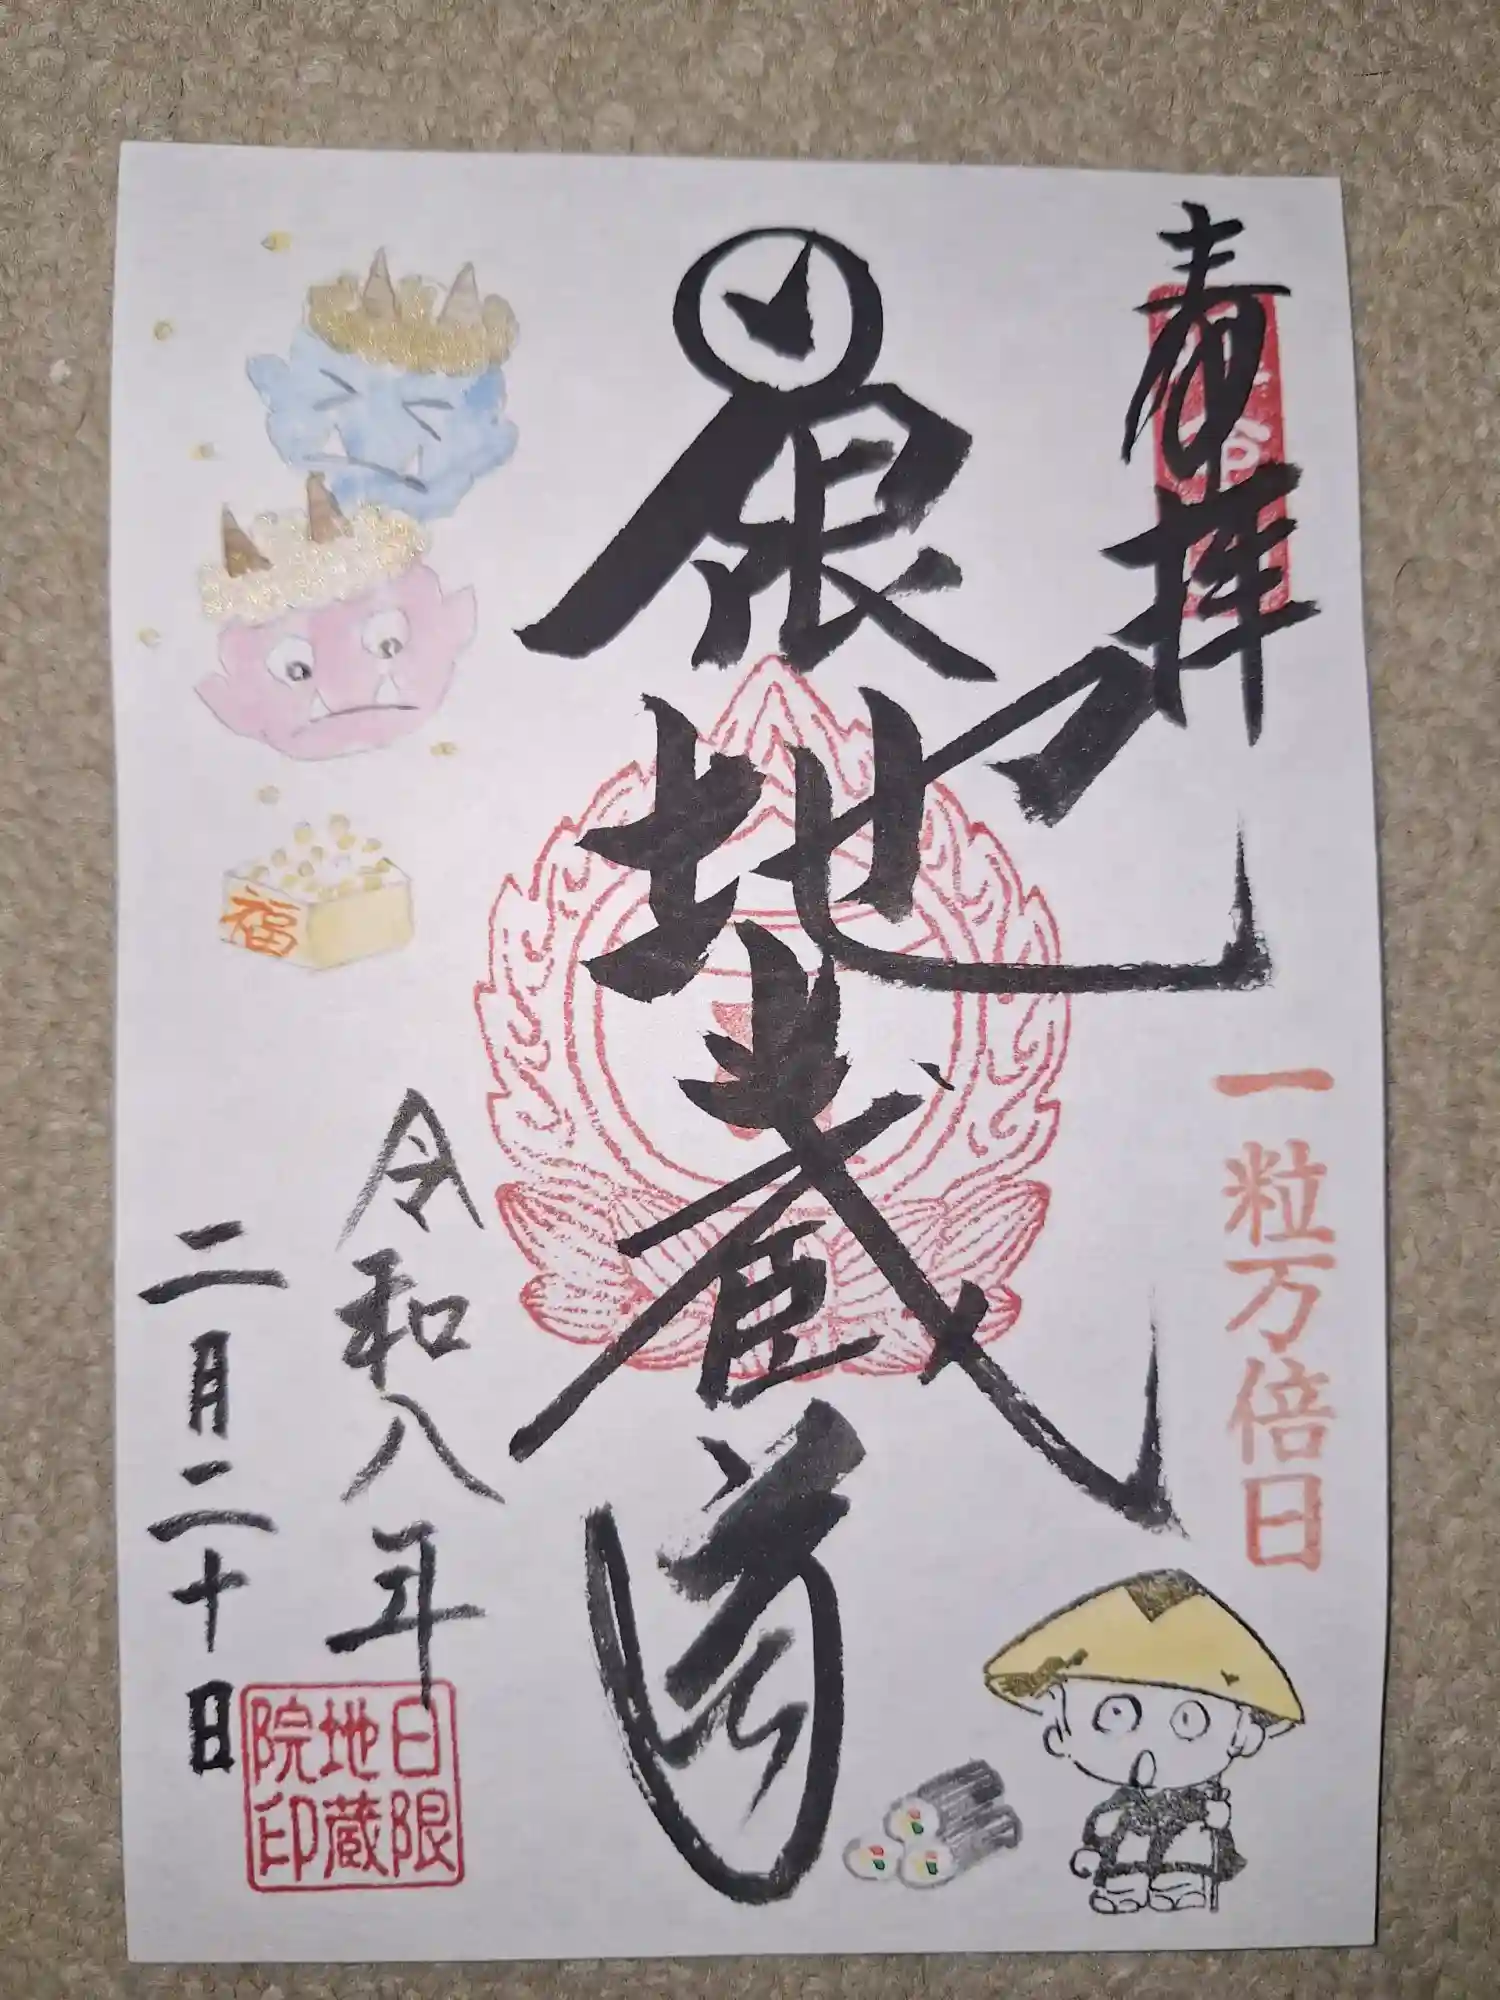 奉拝
一粒万倍日
日限地蔵尊
福
令和八年
二月二十日
日限
地蔵
院印